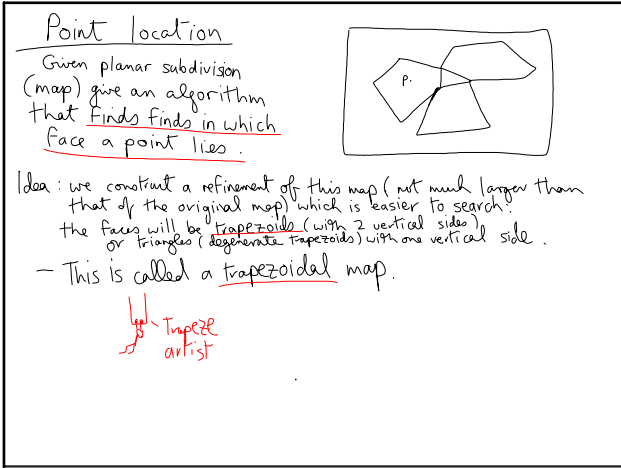 Point location
Given planar subdivision
(map) give an algorithm
that finds finds in which
face a point lies.
p.
Idea: we construct a refinement of this map (not much larger than
that of the original map) which is easier to search:
the faces will be trapezoids (with 2 vertical sides)
or triangles (degenerate trapezoids) with one vertical side.
- This is called a trapezoidal map.
Trapeze
artist